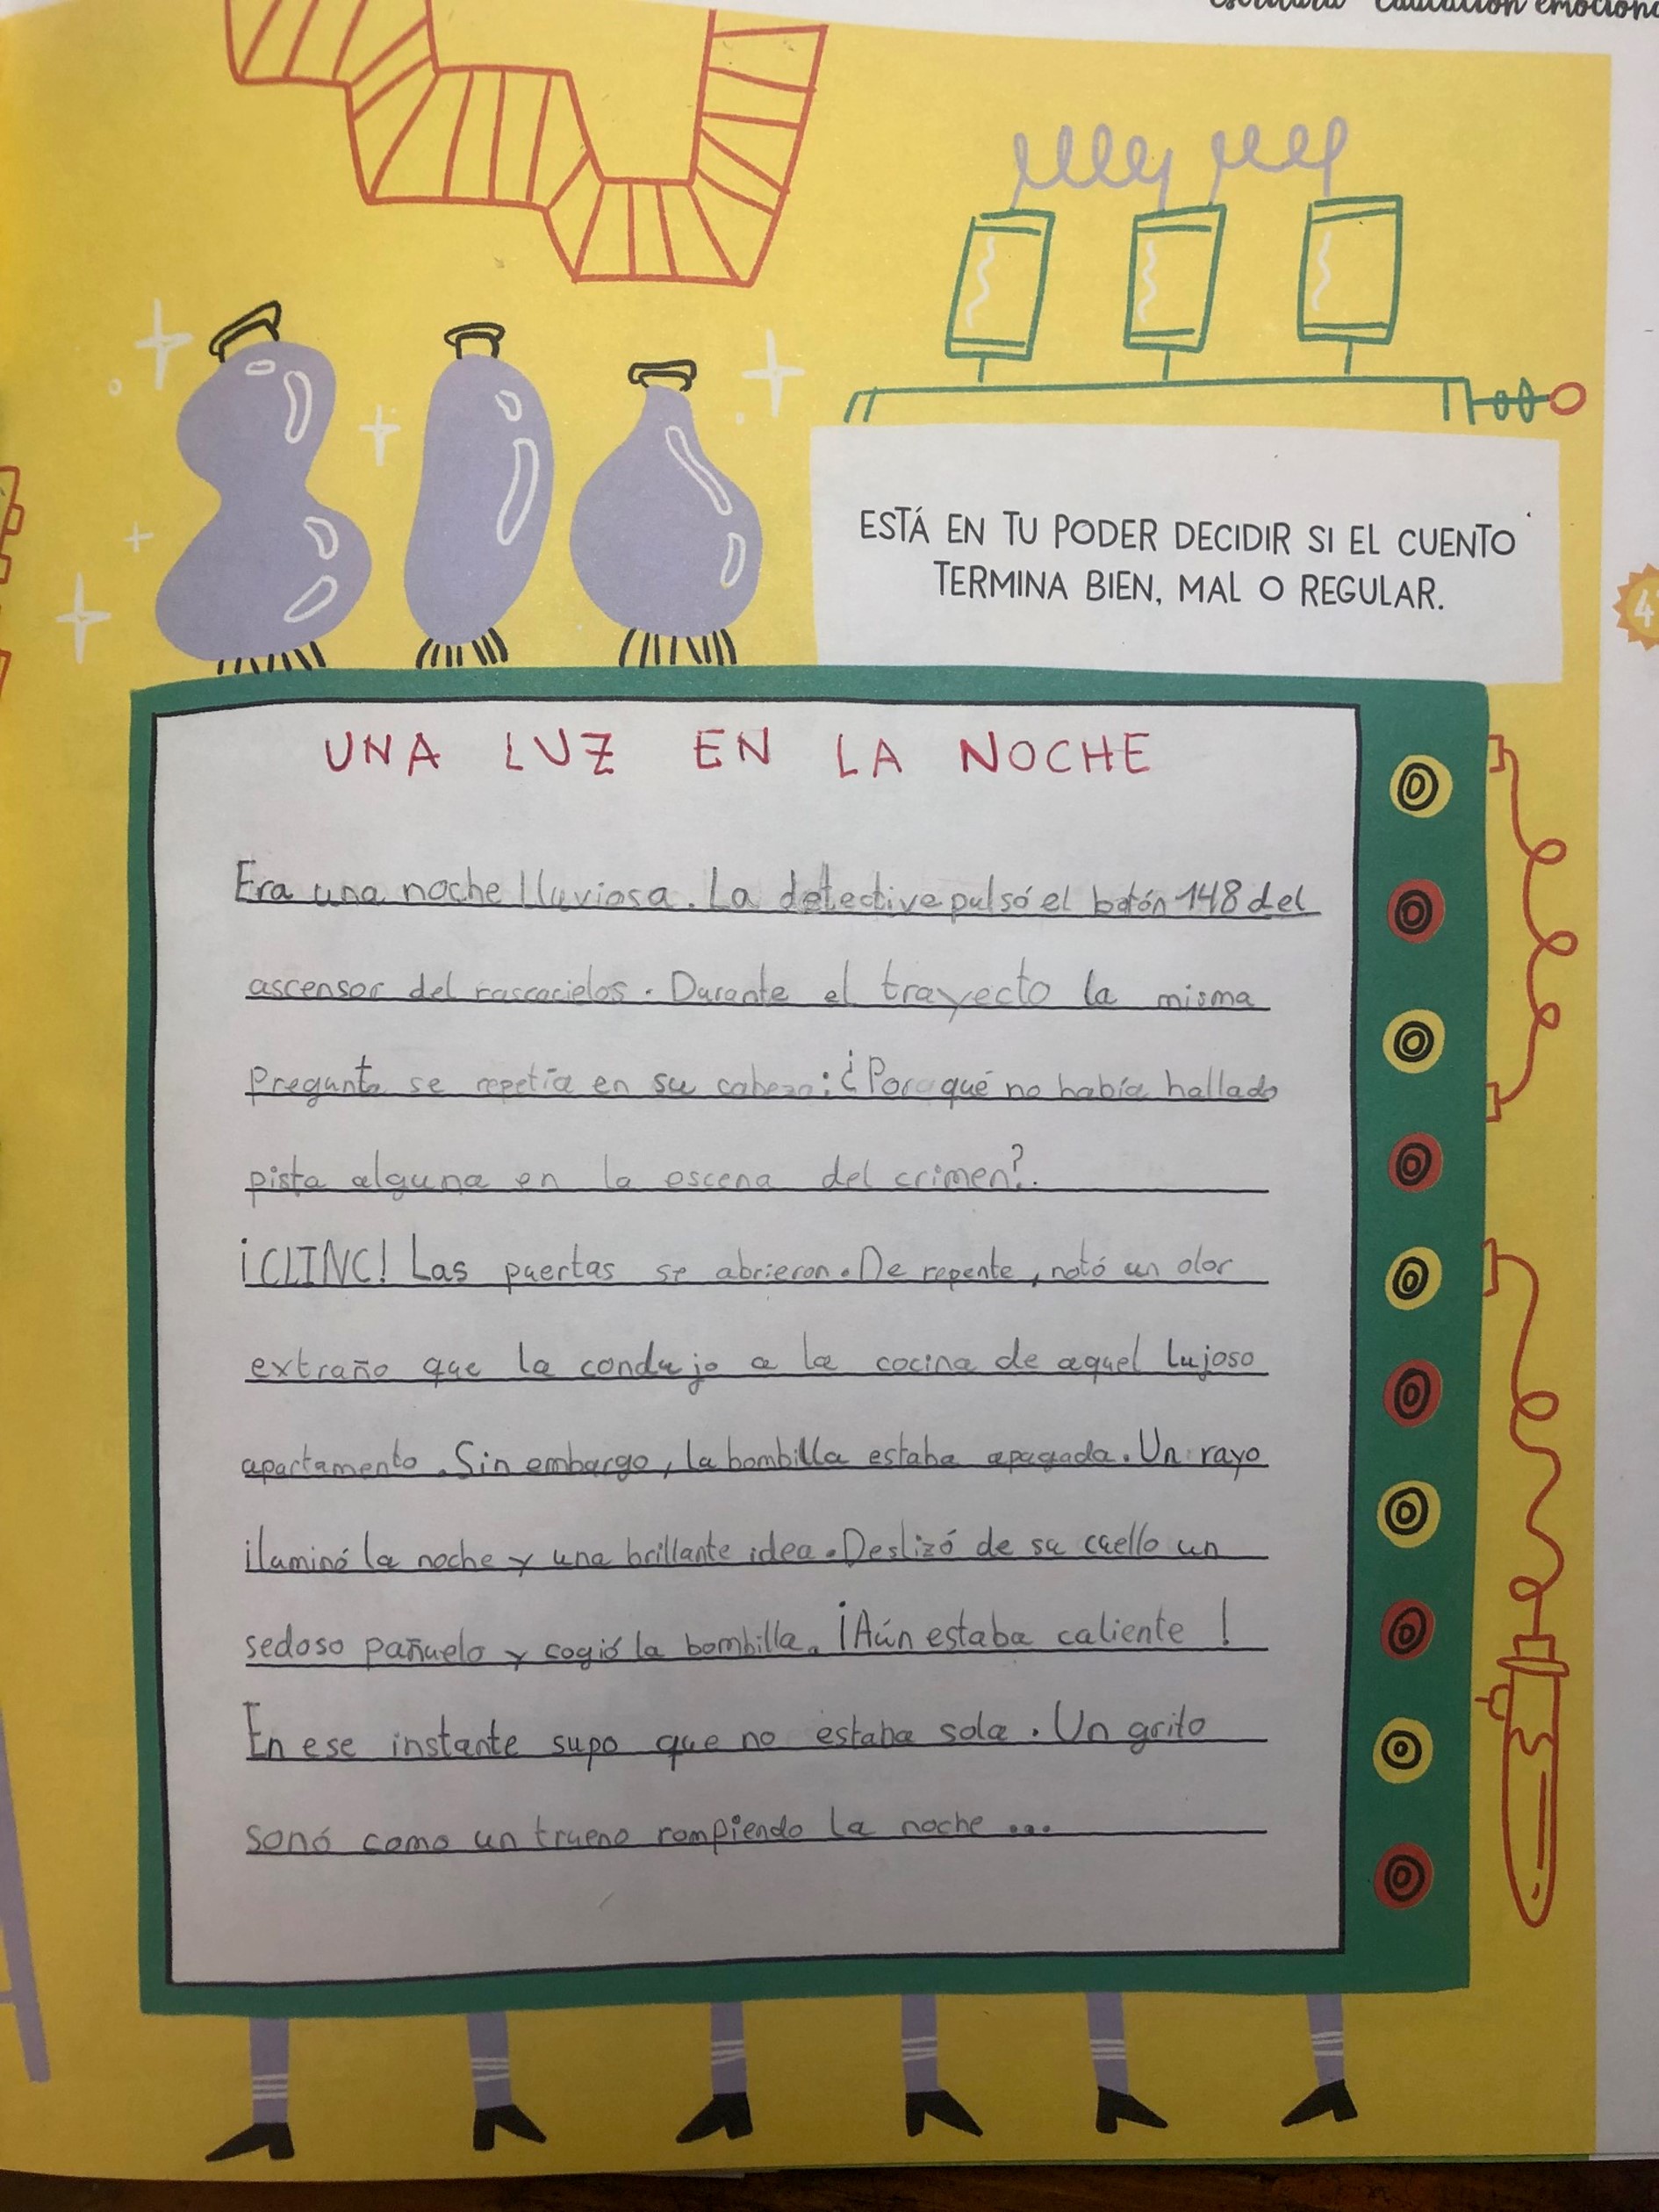 escritura Educación emocion
ESTÁ EN TU PODER DECIDIR SI EL CUENTO
TERMINA BIEN, MAL O REGULAR.
4
UNA LUZ EN LA NOCHE
Era una noche lluviosa. La detective pulsó el botón 148 del
ascensor del rascacielos. Durante el trayecto la misma
pregunta se repetía en su cabeza: ¿Por qué no había hallado
pista alguna en la escena del crimen?.
¡CLINC! Las puertas se abrieron. De repente, notó un olor
extraño que la condujo a la cocina de aquel lujoso
apartamento. Sin embargo, la bombilla estaba apagada. Un rayo
iluminó la noche y una brillante idea. Deslizó de su cuello un
sedoso pañuelo y cogió la bombilla. ¡Aún estaba caliente!
En ese instante supo que no estaba sola. Un grito
sonó como un trueno rompiendo la noche ...